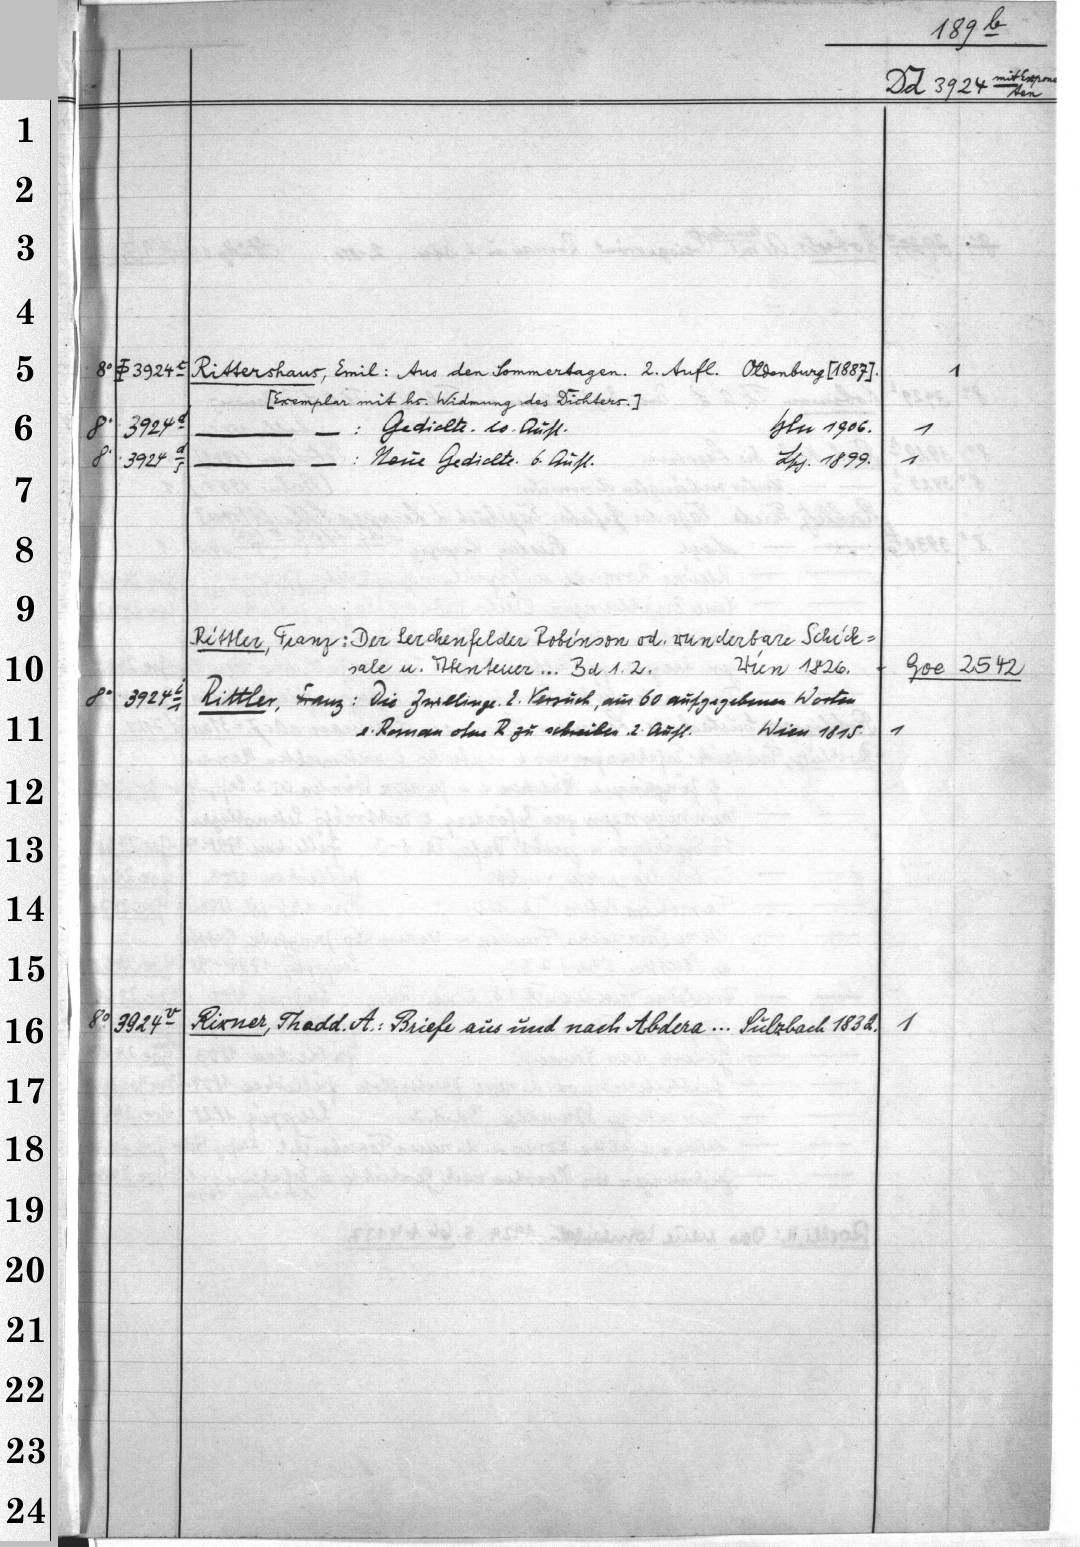 189 b
Dd 3924 mit Expone
ten
1
2
3
4
5 8° 3924 c Rittershaus, Emil: Aus den Sommertagen. 2. Aufl. Oldenburg [1887]. 1
[Exemplar mit hs. Widmung des Dichters.]
6 8° 3924 d — — : Gedichte. 10. Aufl. Bln 1906. 1
8° 3924 d — — : Neue Gedichte. 6. Aufl. Lpz. 1899. 1
7
8
9
Rittler, Franz: Der Lerchenfelder Robinson od. wunderbare Schick=
10 sale u. Abenteuer ... Bd 1. 2. Wien 1826. - Goe 2542
8° 3924 i Rittler, Franz: Die Zwillinge. E. Versuch, aus 60 aufgegebenen Worten
11 e. Roman ohne R zu schreiben. 2. Aufl. Wien 1815. 1
12
13
14
15
16 8° 3924 v Rixner, Thadd. A.: Briefe aus und nach Abdera ... Sulzbach 1832. 1
17
18
19
20
21
22
23
24